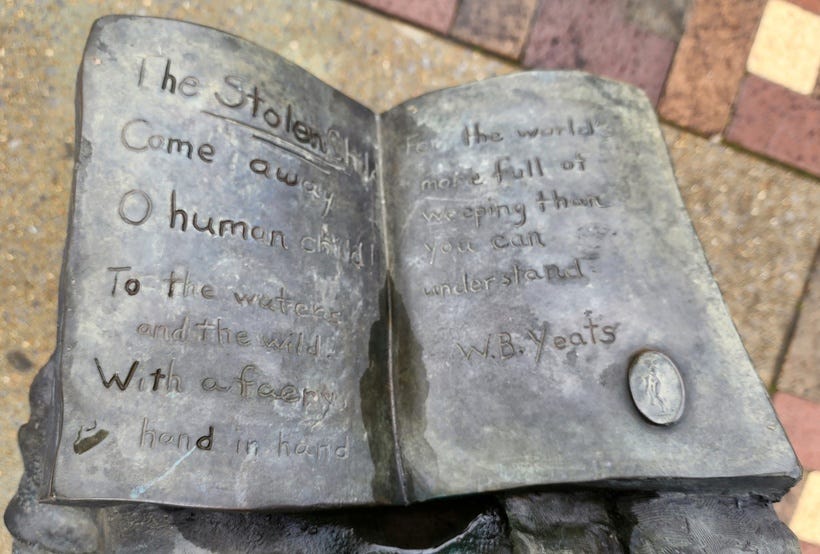 The Stolen Child
Come away
O human child!
To the waters
and the wild.
With a faery,
hand in hand
For the world's
more full of
weeping than
you can
understand.
W.B. Yeats